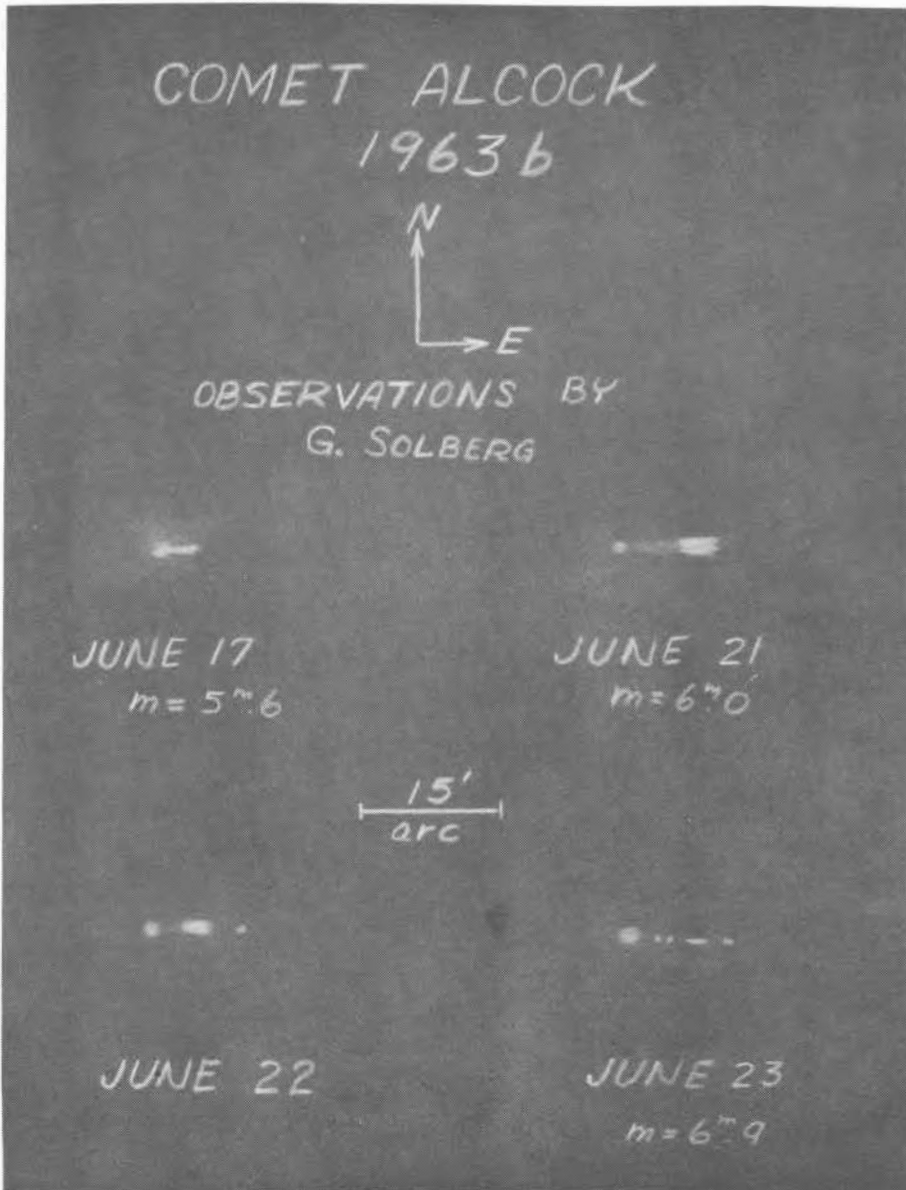 COMET ALCOCK
1963 b
N
E
OBSERVATIONS BY
G. SOLBERG
JUNE 17
m = 5ᵐ.6
JUNE 21
m = 6ᵐ.0
15'
arc
JUNE 22
JUNE 23
m = 6ᵐ.9